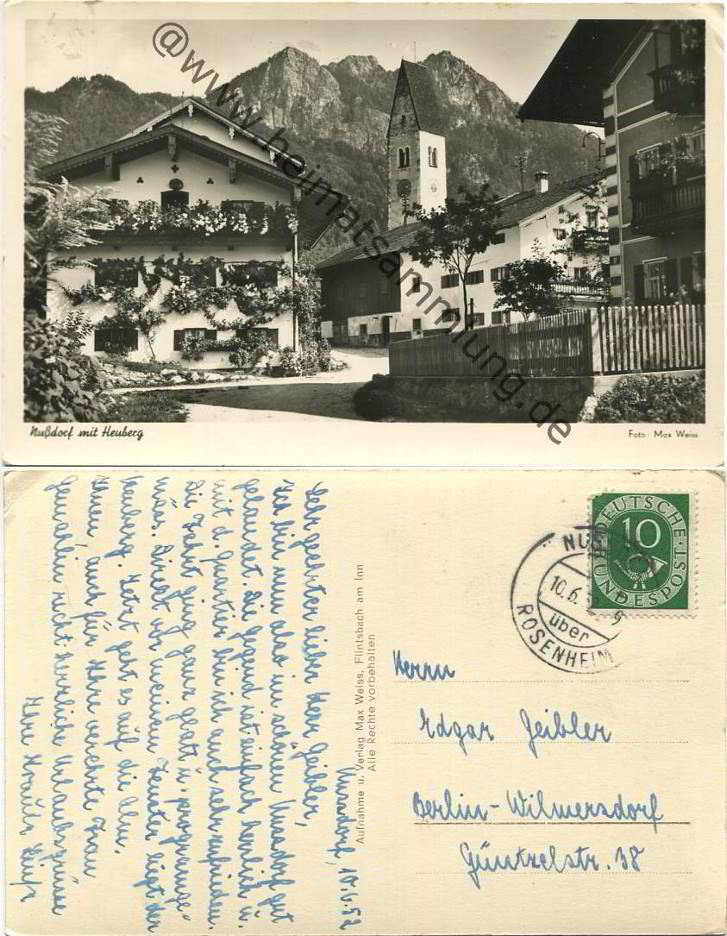 @www.heimatsammlung.de
Nußdorf mit Heuberg
Foto: Max Weiss
Nussdorf, 10.6.52
Sehr geehrter lieber Herr Geibler,
Ich bin nun also im schönen Nussdorf gut
gelandet. Die Gegend ist einfach herrlich u.
mit d. Quartier bin ich auch sehr zufrieden.
Die Fahrt ging ganz glatt u. programm-
mäss. Direkt vor meinem Fenster liegt der
Heuberg. Jetzt geht es auf die Alm.
Ihnen, auch für Ihre verehrte Frau
Gemahlin recht herzliche Urlaubsgrüsse
Ihre
Aufnahme u. Verlag Max Weiss, Flintsbach am Inn
Alle Rechte vorbehalten
DEUTSCHE
10
BUNDESPOST
10.6.
über
ROSENHEIM
Herrn
Edgar Geibler
Berlin-Wilmersdorf
Güntzelstr. 38